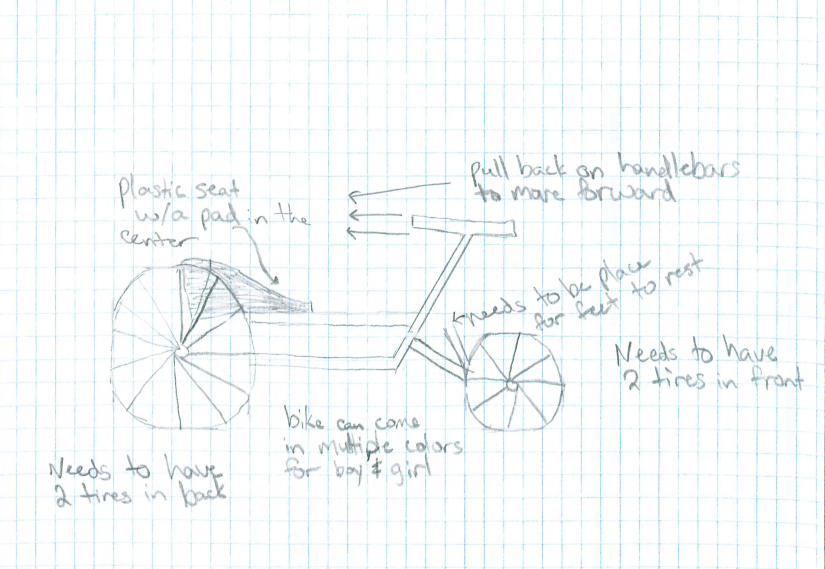 pull back on handlebars
to move forward
plastic seat
w/a pad in the
center
needs to be place
for feet to rest
Needs to have
2 tires in front
bike can come
in multiple colors
for boy & girl
Needs to have
2 tires in back